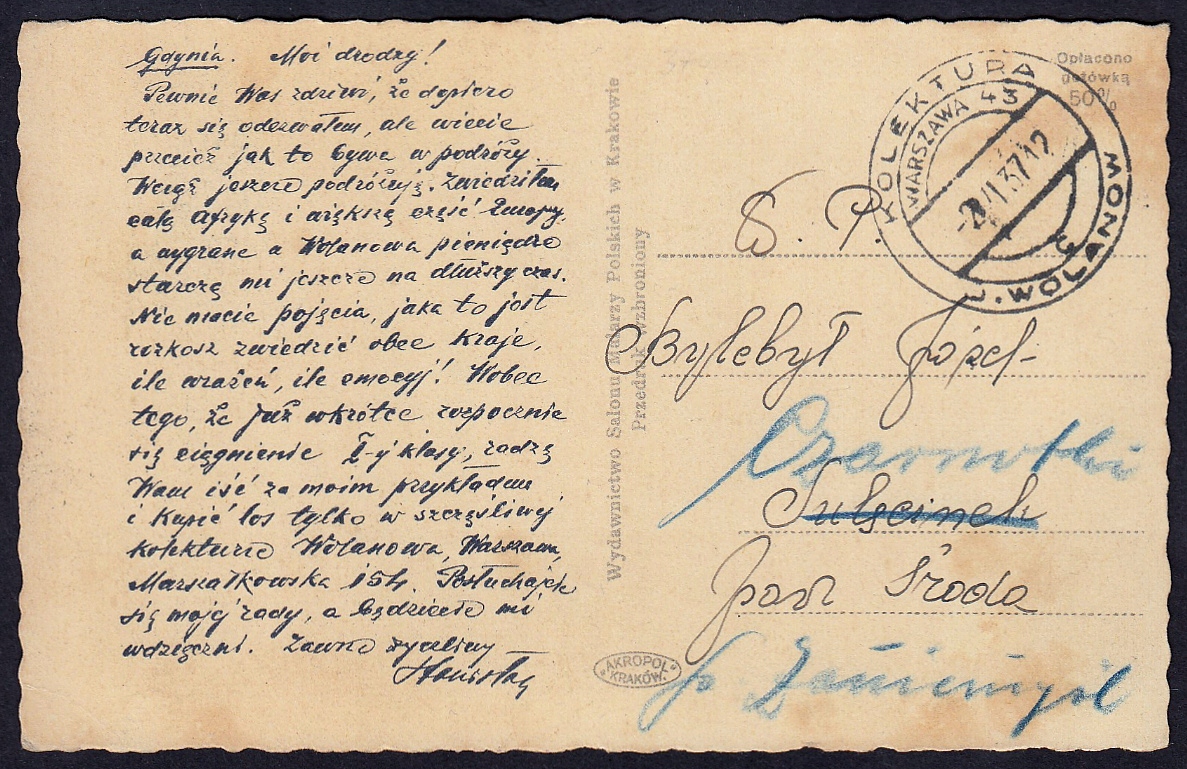 Gdynia. Moi drodzy!
Pewnie Was zdziwi, że dopiero
teraz się odezwałem, ale wiecie
przecież jak to bywa w podróży.
Wciąż jeszcze podróżuję. Zwiedziłem
całą Afrykę i większą część Europy,
a wygrane u Wolanowa pieniądze
starczą mi jeszcze na dłuższy czas.
Nie macie pojęcia, jaka to jest
rozkosz zwiedzić obce kraje,
ile wrażeń, ile emocyj! Wobec
tego, że już wkrótce rozpocznie
się ciągnienie I-ej klasy, radzę
Wam iść za moim przykładem
i kupić los tylko w szczęśliwej
kolekturze Wolanowa, Warszawa,
Marszałkowska 154. Posłuchajcie
się mojej rady, a będziecie mi
wdzięczni. Zawsze życzliwy
Wydawnictwo Salonu Malarzy Polskich w Krakowie
Przedruk wzbroniony
"AKROPOL"
KRAKÓW.
Opłacono
gotówką
50%
KOLEKTURA
WARSZAWA 43
J. WOLANOW
W. P.
Bylebył Józef
Czarnotki
Sulęcinek
pow Środa
p Zaniemyśl